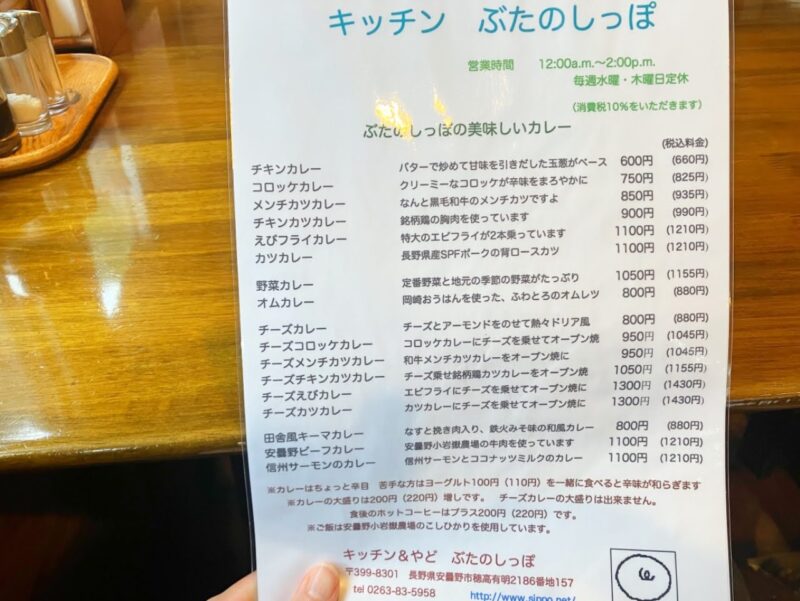 キッチン　ぶたのしっぽ
営業時間　12:00a.m.〜2:00p.m.
毎週水曜・木曜日定休
（消費税10%をいただきます）
ぶたのしっぽの美味しいカレー
(税込料金)
チキンカレー　バターで炒めて甘味を引きだした玉葱がベース　600円　(660円)
コロッケカレー　クリーミーなコロッケが辛味をまろやかに　750円　(825円)
メンチカツカレー　なんと黒毛和牛のメンチカツですよ　850円　(935円)
チキンカツカレー　銘柄鶏の胸肉を使っています　900円　(990円)
えびフライカレー　特大のエビフライが2本乗っています　1100円　(1210円)
カツカレー　長野県産SPFポークの背ロースカツ　1100円　(1210円)
野菜カレー　定番野菜と地元の季節の野菜がたっぷり　1050円　(1155円)
オムカレー　岡崎おうはんを使った、ふわとろのオムレツ　800円　(880円)
チーズカレー　チーズとアーモンドをのせて熱々ドリア風　800円　(880円)
チーズコロッケカレー　コロッケカレーにチーズを乗せてオーブン焼　950円　(1045円)
チーズメンチカツカレー　和牛メンチカツカレーをオーブン焼に　950円　(1045円)
チーズチキンカツカレー　チーズ乗せ銘柄鶏カツカレーをオーブン焼　1050円　(1155円)
チーズえびカレー　エビフライにチーズを乗せてオーブン焼に　1300円　(1430円)
チーズカツカレー　カツカレーにチーズを乗せてオーブン焼に　1300円　(1430円)
田舎風キーマカレー　なすと挽き肉入り、鉄火みそ味の和風カレー　800円　(880円)
安曇野ビーフカレー　安曇野小岩嶽農場の牛肉を使っています　1100円　(1210円)
信州サーモンのカレー　信州サーモンとココナッツミルクのカレー　1100円　(1210円)
※カレーはちょっと辛目　苦手な方はヨーグルト100円（110円）を一緒に食べると辛味が和らぎます
※カレーの大盛りは200円（220円）増しです。　チーズカレーの大盛りは出来ません。
食後のホットコーヒーはプラス200円（220円）です。
※ご飯は安曇野小岩嶽農場のこしひかりを使用しています。
キッチン＆やど　ぶたのしっぽ
〒399-8301　長野県安曇野市穂高有明2186番地157
tel 0263-83-5958　http://www.sippo.net/